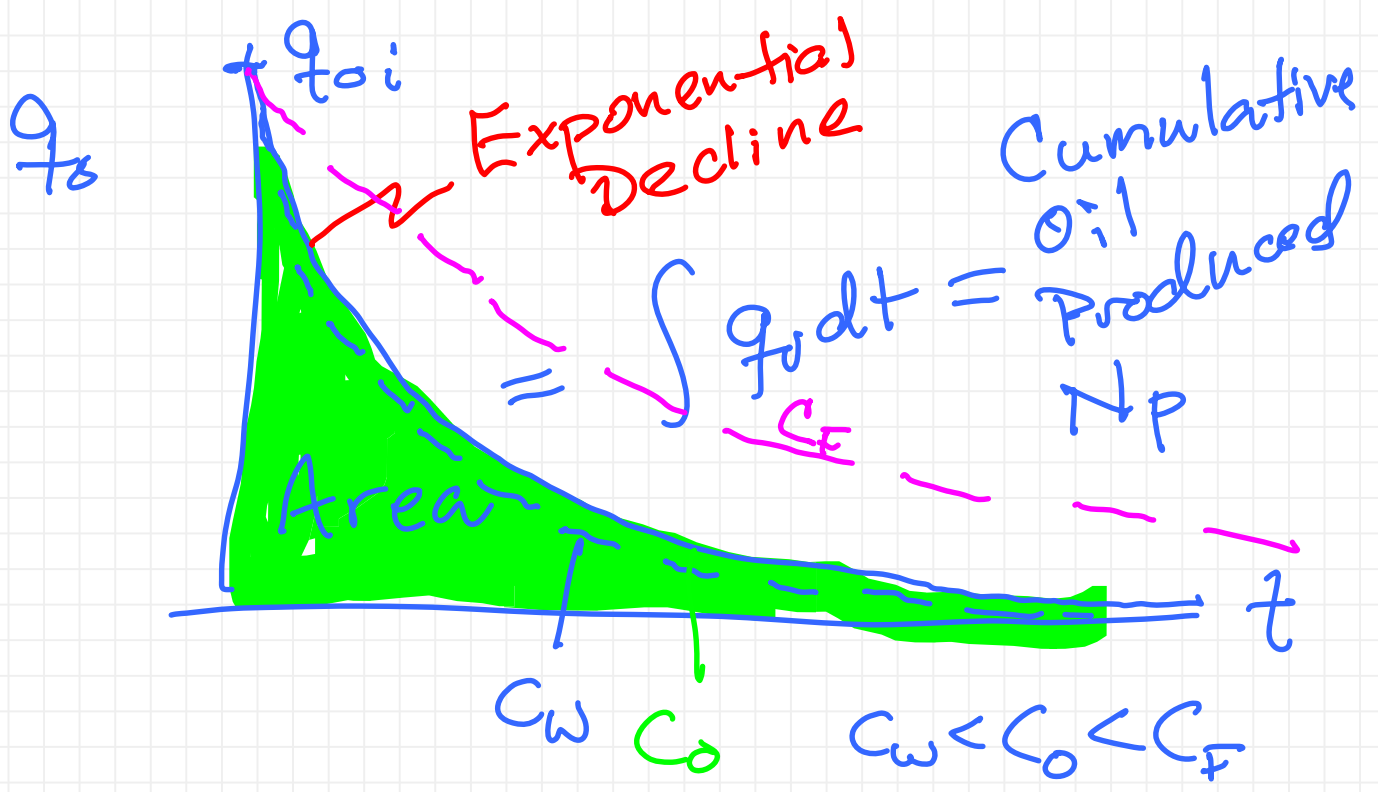 q_o
q_oi
Exponential
Decline
Cumulative
Oil
Produced
Np
= ∫ q_o dt =
C_F
Area
t
C_w
C_o
C_w < C_o < C_F